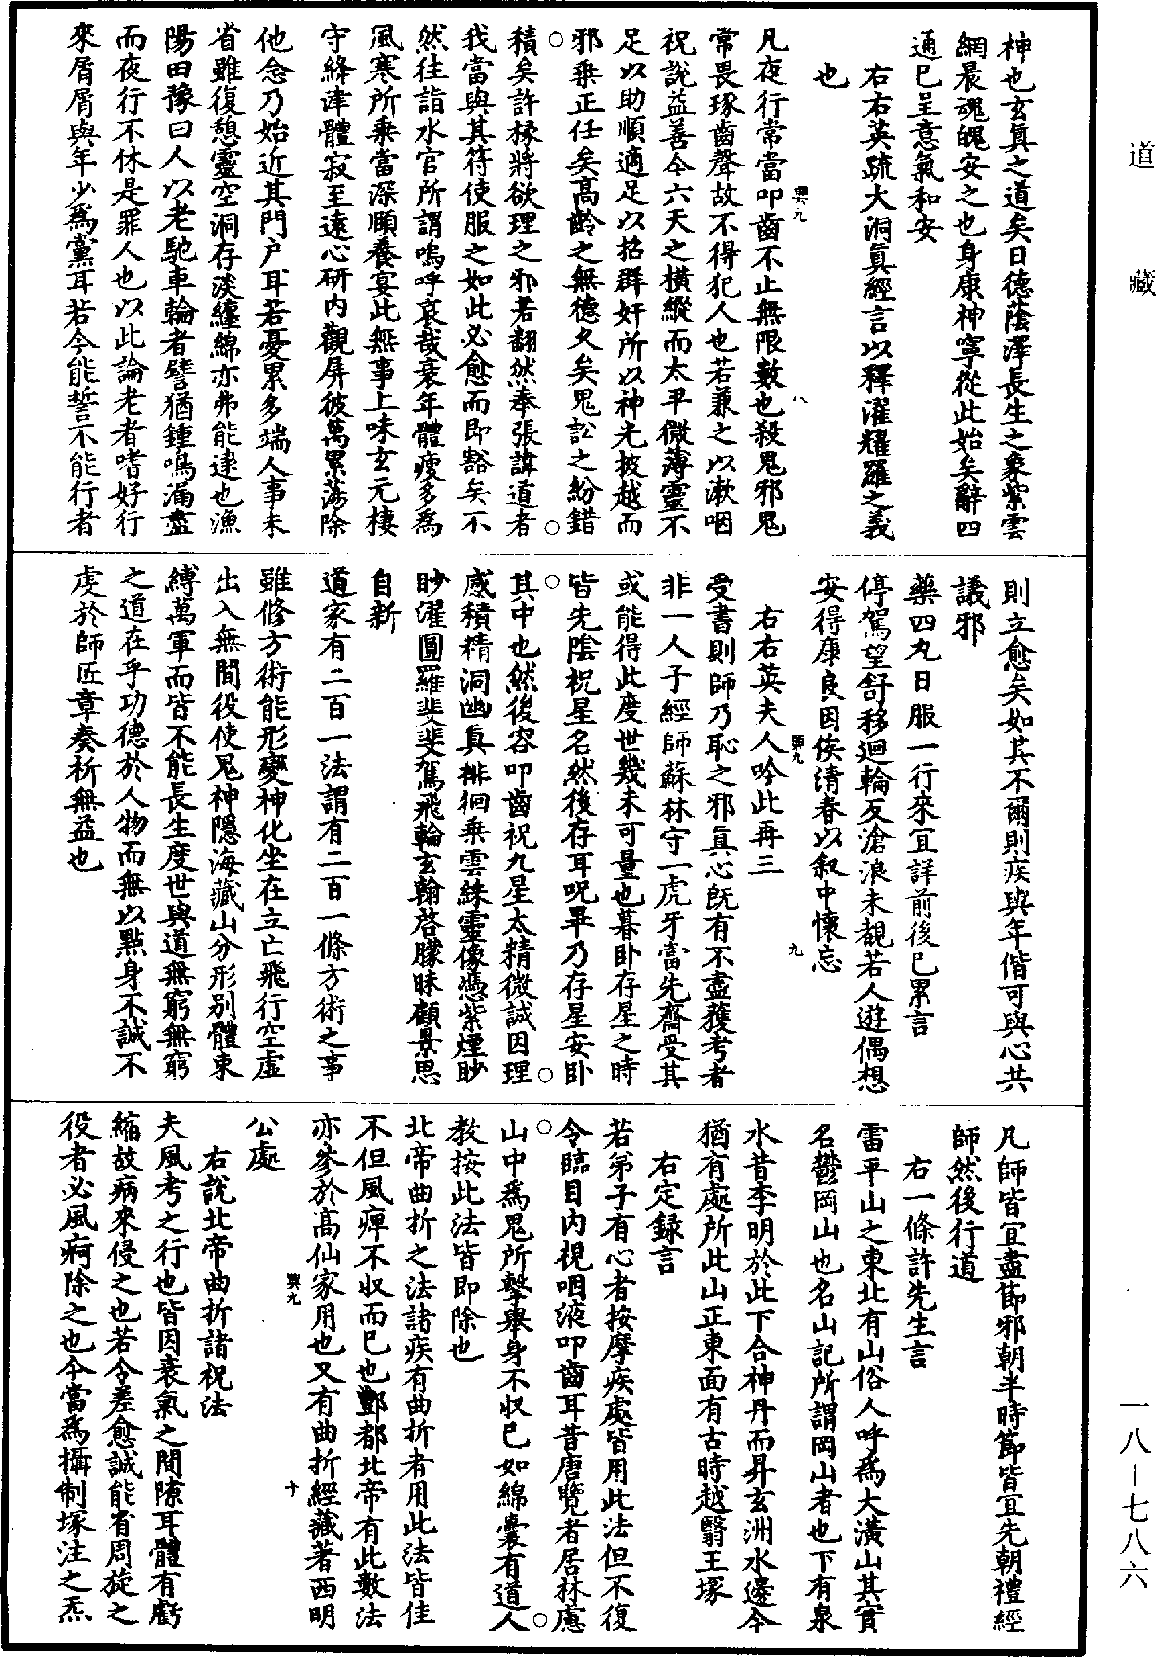 道藏
一八—七八六
神也玄真之道矣日德蔭澤長生之象紫雲
網晨魂魄安之也身康神寧從此始矣辭四
通已呈意氣和安
右右英疏大洞真經言以釋濯耀羅之義
也
興九　八
凡夜行常當叩齒不止無限數也殺鬼邪鬼
常畏琢齒聲故不得犯人也若兼之以漱咽
祝說益善今六天之橫縱而太平微薄靈不
足以助順適足以招群奸所以神光披越而
邪乘正任矣高齡之無德久矣鬼訟之紛錯
○　○
積矣許椽將欲理之邪若翻然奉張諱道者
我當與其符使服之如此必愈而即豁矣不
然往詣水官所謂嗚呼哀哉衰年體瘦多為
風寒所乘當深顧養宴此無事上味玄元棲
守絳津體寂至遠心研內觀屏彼萬累蕩除
他念乃始近其門戶耳若憂累多端人事未
省雖復憩靈空洞存淡纏綿亦弗能逮也漁
陽田豫曰人以老馳車輪者譬猶鍾鳴漏盡
而夜行不休是罪人也以此論老者嗜好行
來屑屑與年少為黨耳若今能誓不能行者
則立愈矣如其不爾則疾與年偕可與心共
議邪
藥四丸日服一行來宜詳前後已累言
停駕望舒移迴輪反滄浪未覩若人遊偶想
安得康良因俟清春以敘中懷忘
興九　九
右右英夫人吟此再三
受書則師乃恥之邪真心既有不盡獲考者
非一人子經師蘇林守一虎牙當先齋受其
或能得此度世幾未可量也暮卧存星之時
皆先陰祝星名然後存耳呪畢乃存星安卧
○　○
其中也然後容叩齒祝九星太精微誠因理
感積精洞幽真徘徊乘雲綵靈像憑紫煙眇
眇濯圓羅斐斐駕飛輪玄翰啓朦昧顧景思
自新
道家有二百一法謂有二百一條方術之事
雖修方術能形變神化坐在立亡飛行空虛
出入無間役使鬼神隱海藏山分形別體束
縛萬軍而皆不能長生度世與道無窮無窮
之道在乎功德於人物而無以點身不誠不
虔於師匠章奏祈無益也
凡師皆宜盡節邪朝半時節皆宜先朝禮經
師然後行道
右一條許先生言
雷平山之東北有山俗人呼為大潢山其實
名鬱岡山也名山記所謂岡山者也下有泉
水昔李明於此下合神丹而昇玄洲水邊今
猶有處所此山正東面有古時越翳王塚
右定録言
若弟子有心者按摩疾處皆用此法但不復
令臨目內視咽液叩齒耳昔唐覽者居林慮
○　○
山中為鬼所擊舉身不收已如綿囊有道人
教按此法皆即除也
北帝曲折之法諸疾有曲折者用此法皆佳
不但風痺不收而已也酆都北帝有此數法
亦參於高仙家用也又有曲折經藏著西明
興九　十
公處
右說北帝曲折諸祝法
夫風考之行也皆因衰氣之間隙耳體有虧
縮故病來侵之也若令差愈誠能省周旋之
役者必風痾除之也今當為攝制塚注之炁